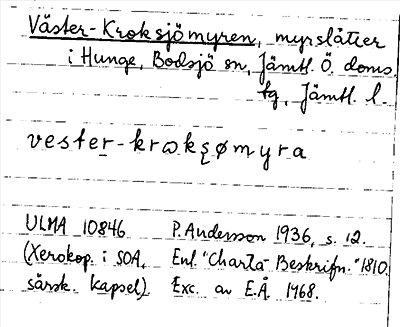 Väster-Kroksjömyren, myrslåtter
i Hunge, Bodsjö sn, Jämtl. Ö. doms.
tg, Jämtl. l.
vester-krokʂømyra
ULMA 10846 P. Andersson 1936, s. 12.
(Xerokop. i SOA, Enl. "Charta-Beskrifn." 1810.
särsk. kapsel) Exc. av E.Å. 1968.